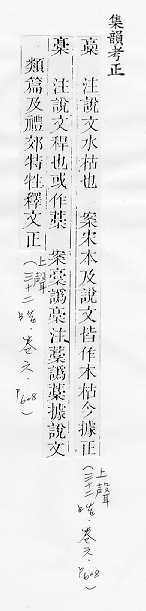 集韻考正
槀 注說文水枯也 案宋本及說文皆作木枯今據正
(上聲三十二晧．卷六．P608)
稾 注說文稈也或作藁 案稾譌槀注藁譌藳據說文
類篇及禮郊特牲釋文正(上聲三十二晧．卷六．P608)